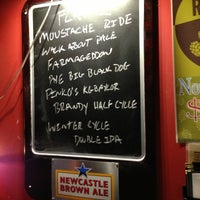 MOUSTACHE RIDE
WALK ABOUT PALE
FARMAGEDDON
PYE BIG BLACK DOG
BRANDY HALF CYCLE
WINTER CYCLE
DOUBLE IPA
NEWCASTLE
BROWN ALE